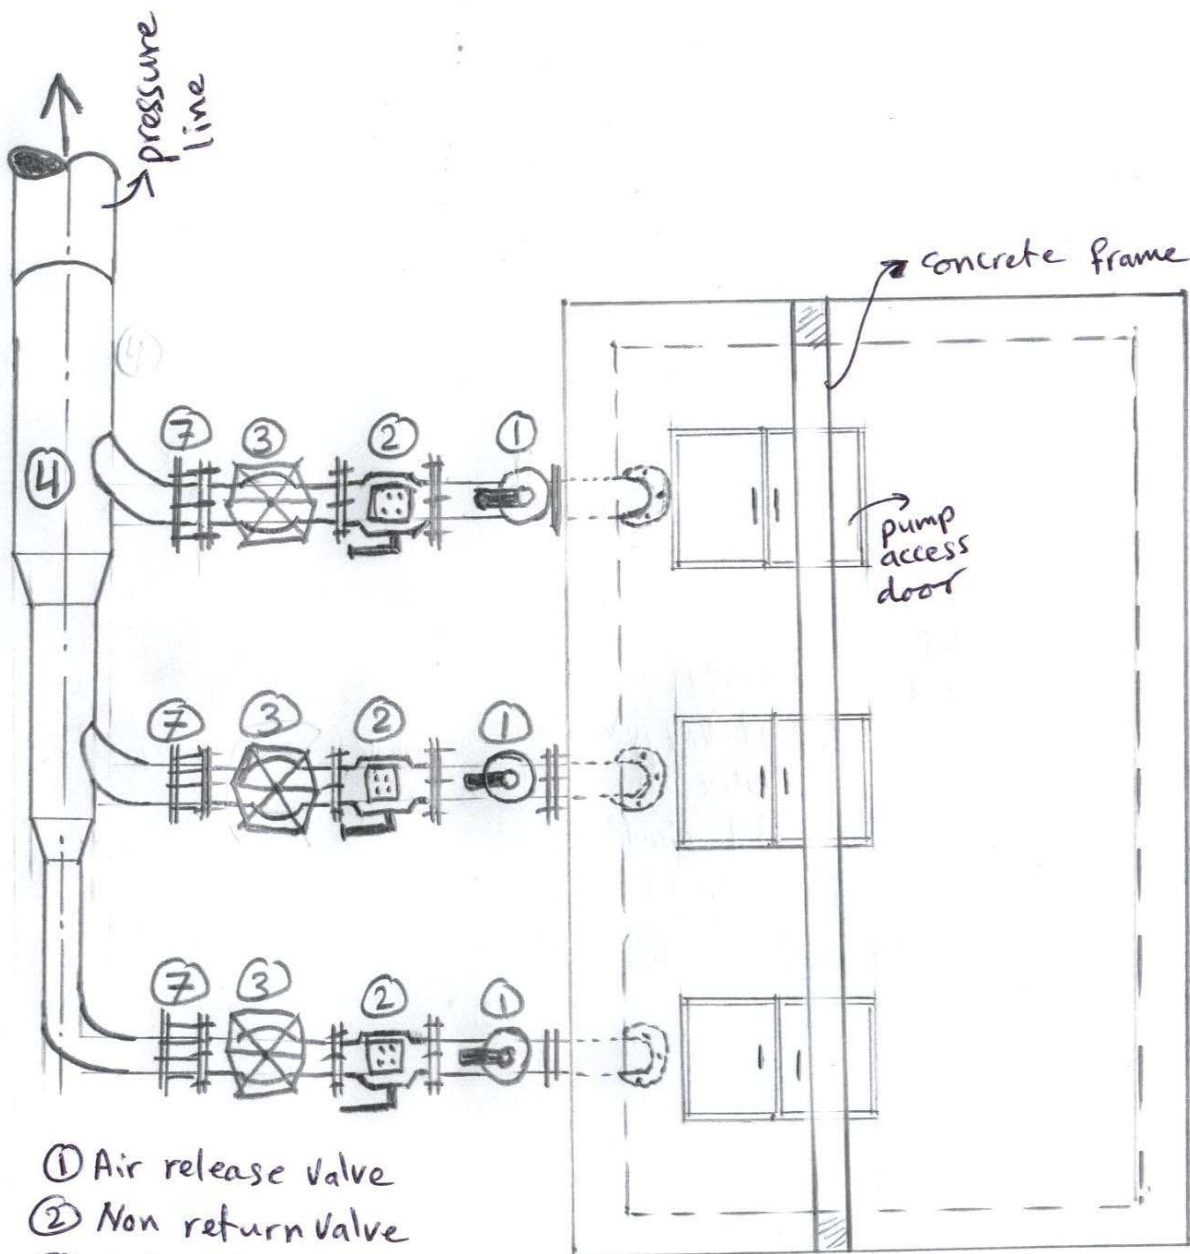 pressure
line
concrete frame
④
⑦ ③ ② ①
④
pump
access
door
⑦ ③ ② ①
⑦ ③ ② ①
① Air release valve
② Non return valve